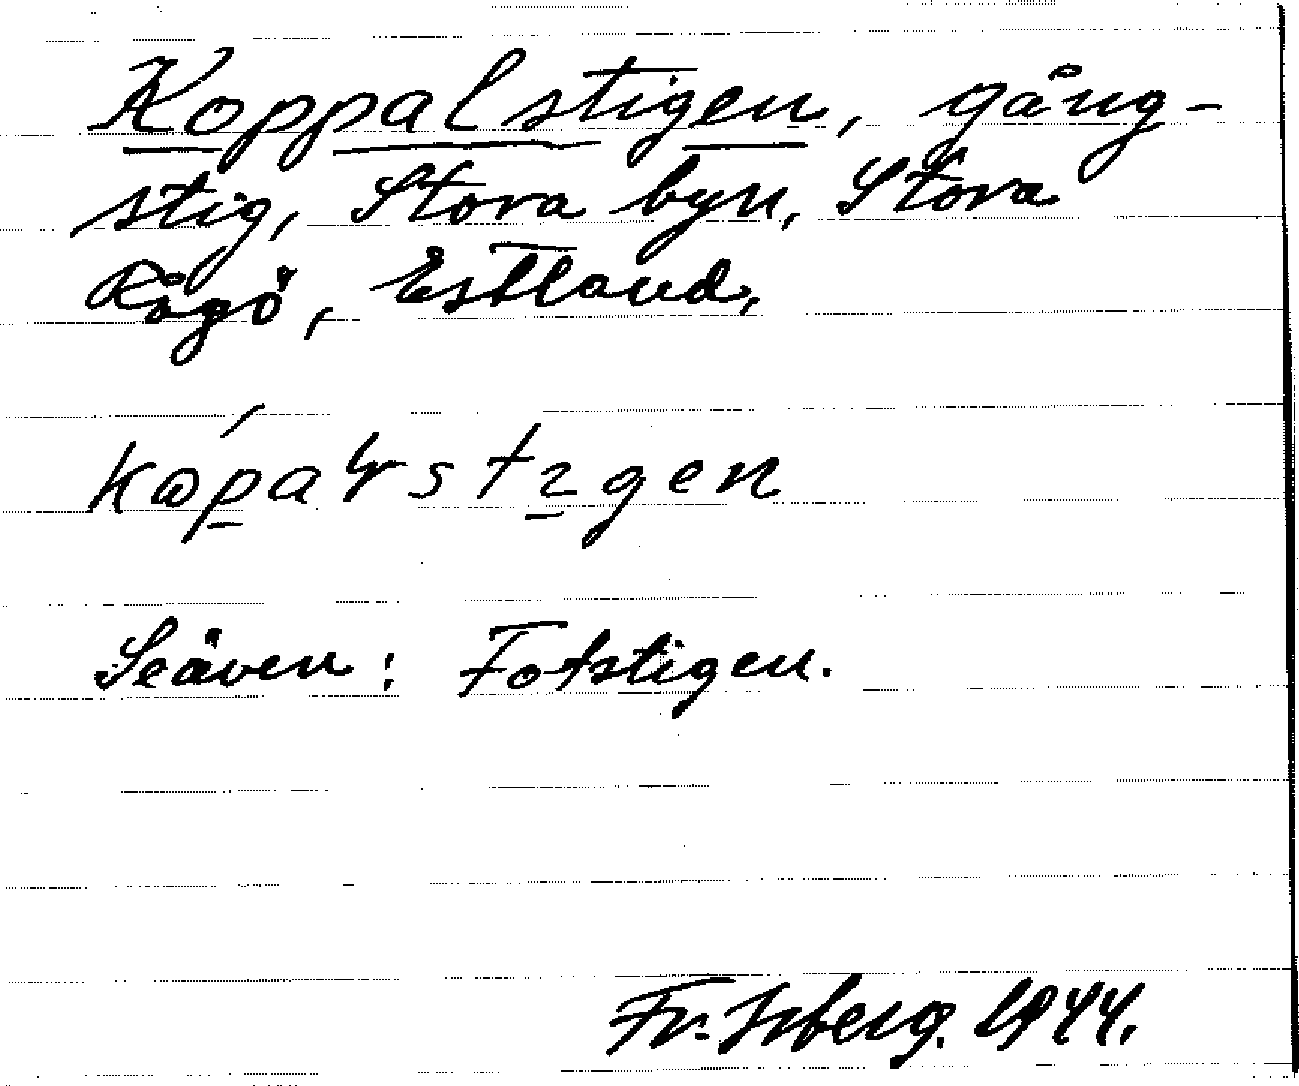 Koppalstigen, gång-
stig, Stora byn, Stora
Rågö, Estland,
Se även: Fotstigen.
Fr. Isberg. 1944.